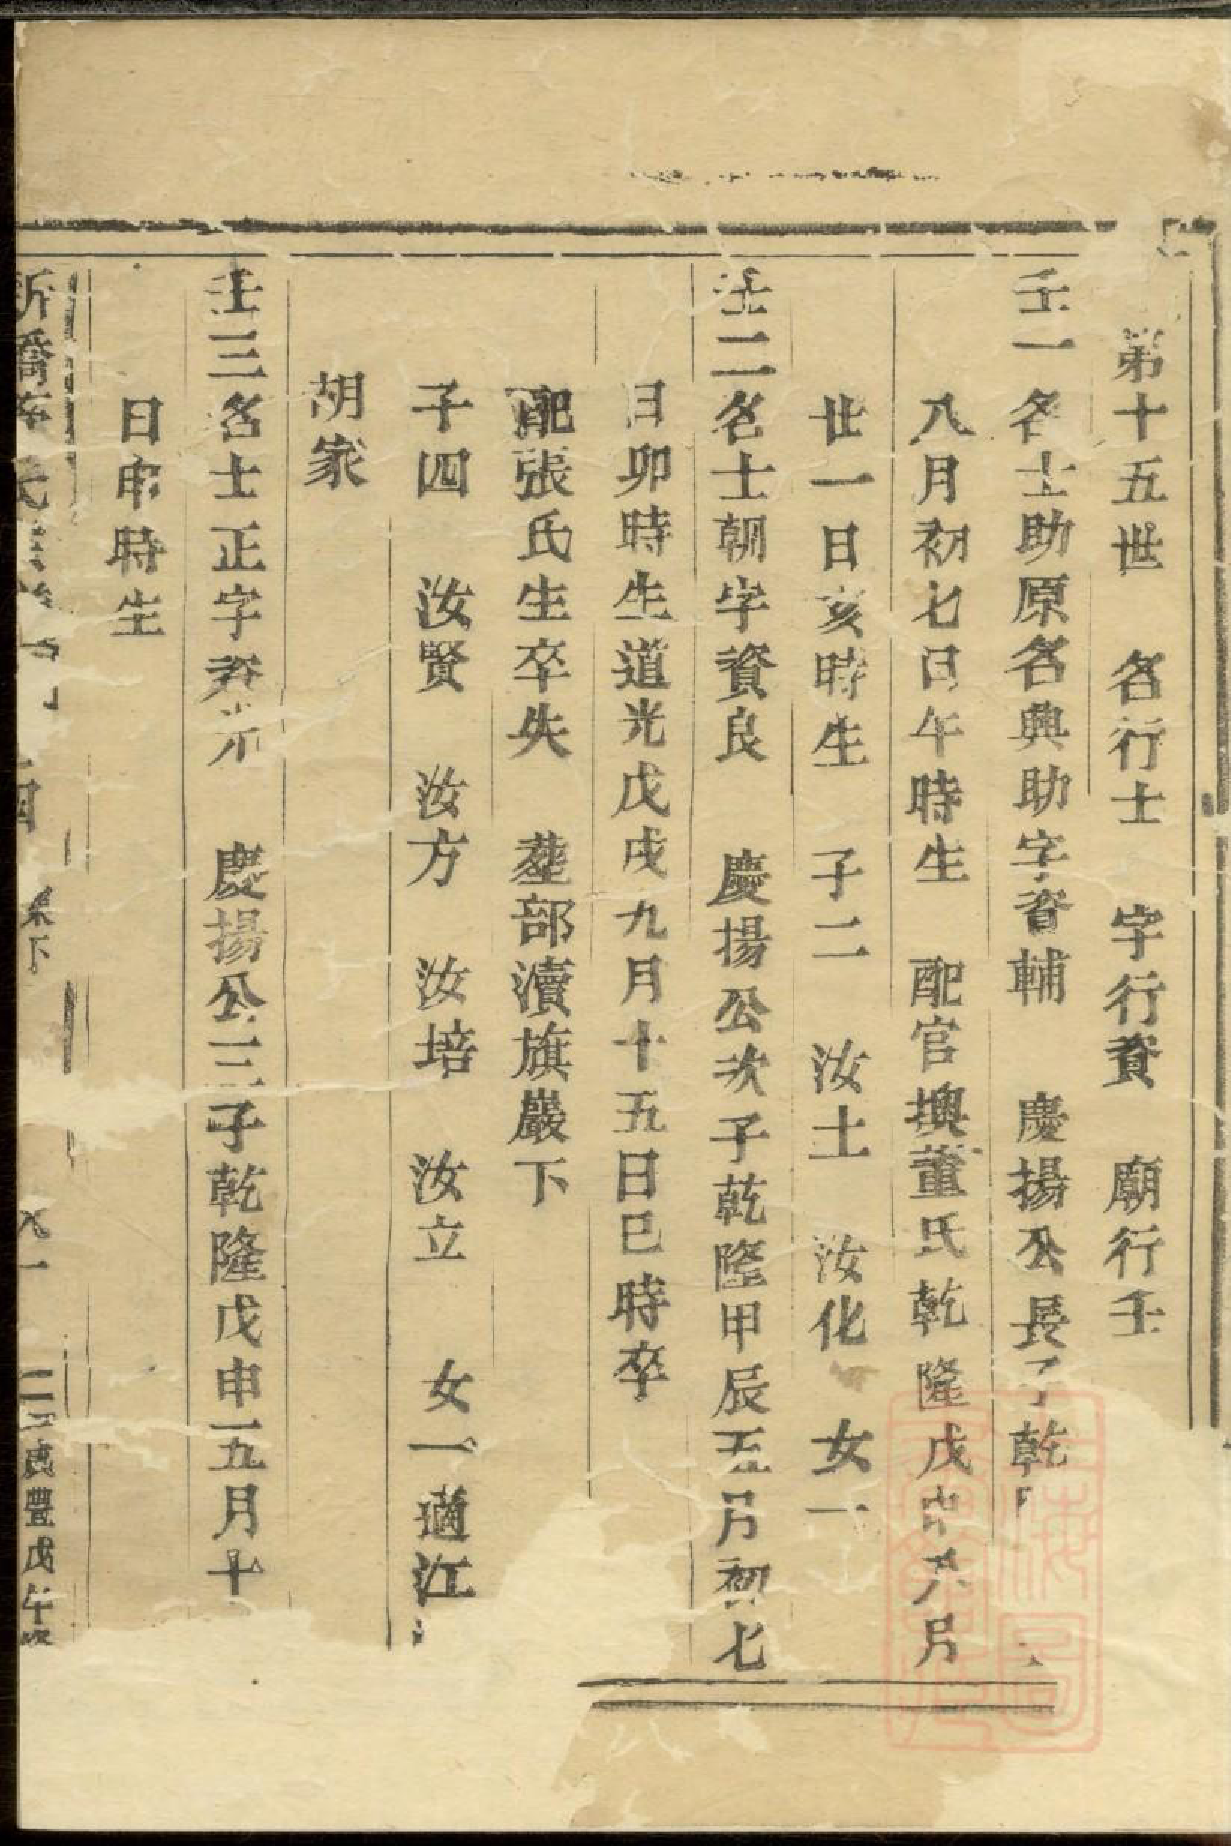 第十五世　名行士　字行資　廟行壬
壬一名士助原名典助字資輔　慶揚公長子乾
八月初七日午時生　配官墺董氏乾隆戊申八月
廿一日亥時生　子二　汝士　汝化　女一
壬二名士朝字資良　慶揚公次子乾隆甲辰五月初七
日卯時生道光戊戌九月十五日巳時卒
配張氏生卒失　塟部瀆旗巖下
子四　汝賢　汝方　汝培　汝立　女一適江
胡家
壬三名士正字資光　慶揚公三子乾隆戊申五月十
日申時生
新橋　氏宗　四　下　二　咸豐戊午